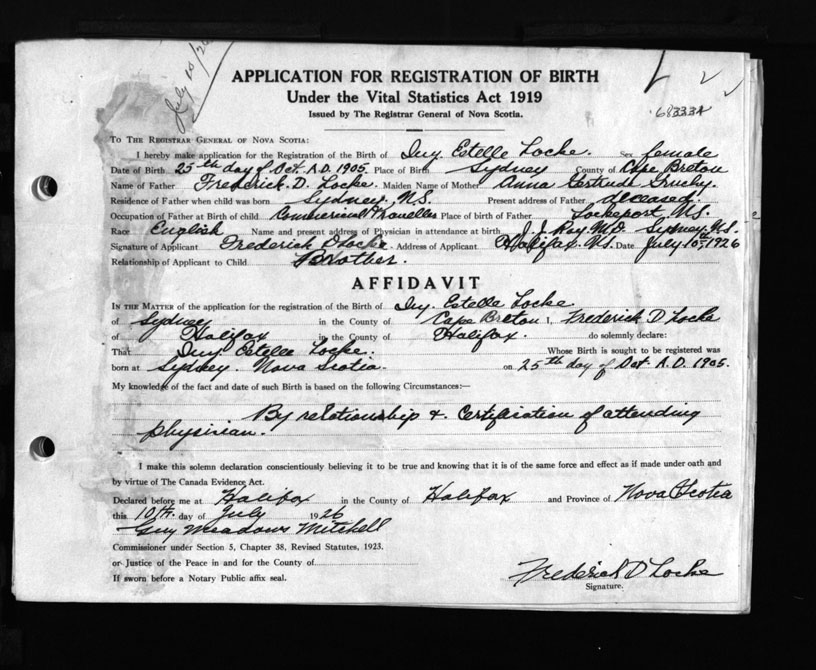 July 10/26
APPLICATION FOR REGISTRATION OF BIRTH
Under the Vital Statistics Act 1919
Issued by The Registrar General of Nova Scotia.
68333A
TO THE REGISTRAR GENERAL OF NOVA SCOTIA:
I hereby make application for the Registration of the Birth of Ivy Estelle Locke. Sex female
Date of Birth 25th day of Oct. A.D. 1905. Place of Birth Sydney County of Cape Breton
Name of Father Frederick. D. Locke. Maiden Name of Mother Anna Gertrude Gruchy.
Residence of Father when child was born Sydney, N.S. Present address of Father deceased.
Occupation of Father at Birth of child Commercial Traveller Place of birth of Father Lockeport N.S.
Race English Name and present address of Physician in attendance at birth J. J. Roy M.D. Sydney N.S.
Signature of Applicant Frederick D Locke. Address of Applicant Halifax. N.S. Date July 10th 1926
Relationship of Applicant to Child Brother.
AFFIDAVIT
IN THE MATTER of the application for the registration of the Birth of Ivy Estella Locke.
of Sydney in the County of Cape Breton I, Frederick D Locke
of Halifax in the County of Halifax. do solemnly declare:
That Ivy Estelle Locke. Whose Birth is sought to be registered was
born at Sydney. Nova Scotia. on 25th day of Oct. A.D. 1905.
My knowledge of the fact and date of such Birth is based on the following Circumstances:—
By relationship & Certification of attending
physician.
I make this solemn declaration conscientiously believing it to be true and knowing that it is of the same force and effect as if made under oath and
by virtue of The Canada Evidence Act.
Declared before me at Halifax in the County of Halifax and Province of Nova Scotia
this 10th. day of July 1926
Guy Meadows Mitchell
Commissioner under Section 5, Chapter 38, Revised Statutes, 1923.
or Justice of the Peace in and for the County of
If sworn before a Notary Public affix seal.
Frederick D Locke
Signature.